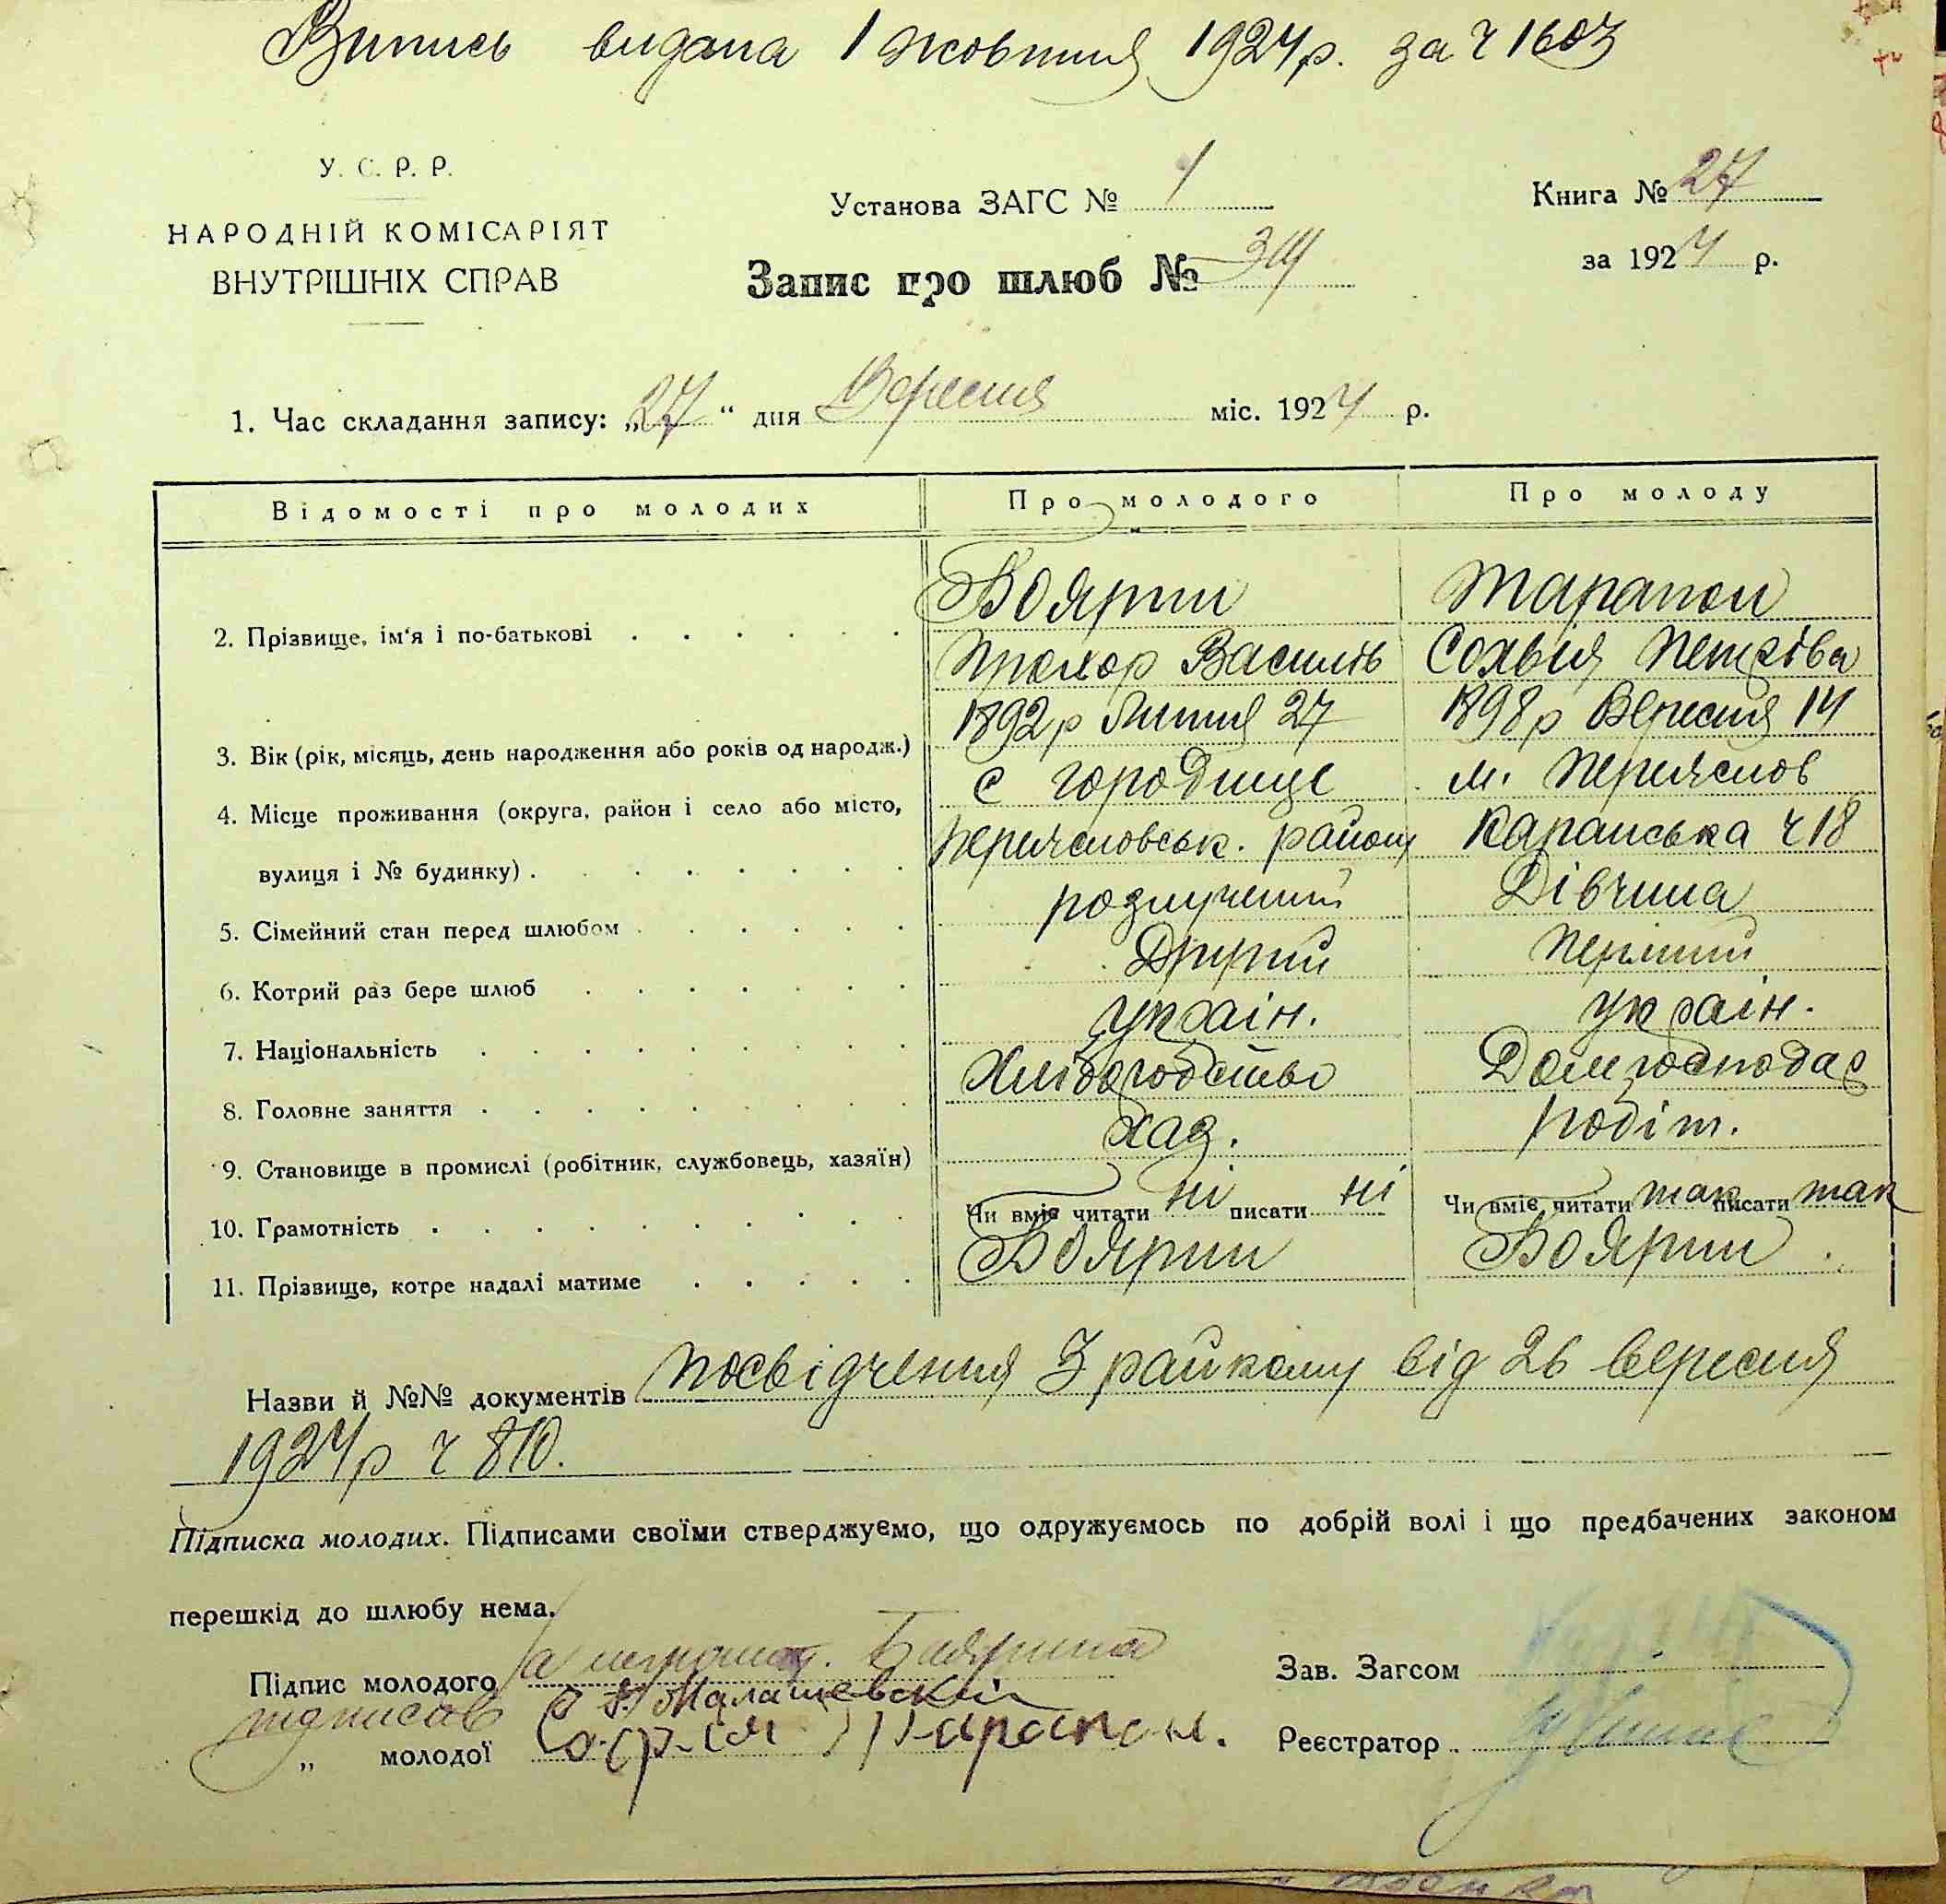 Випись видана 1 жовтня 1924 р. за ч 1603
У. С. Р. Р.
НАРОДНІЙ КОМІСАРІЯТ
ВНУТРІШНІХ СПРАВ
Установа ЗАГС № 1
Запис про шлюб № 314
Книга № 27
за 1924 р.
1. Час складання запису: „27“ дня Вересня міс. 1924 р.
Відомості про молодих Про молодого Про молоду
2. Прізвище, ім'я і по-батькові
Боярин Тарапон
Прохор Василів Сохвія Петріва
3. Вік (рік, місяць, день народження або років од народж.) 1892 р Липня 27 1898 р Вересня 14
4. Місце проживання (округа, район і село або місто, с городище м. Переяслов
вулиця і № будинку) Переясловськ. району Каранська ч 18
5. Сімейний стан перед шлюбом розлучений Дівчина
6. Котрий раз бере шлюб Другий Перший
7. Національність україн. україн.
8. Головне заняття Хліборобство Домгосподар
9. Становище в промислі (робітник, службовець, хазяїн) хаз. робіт.
10. Грамотність Чи вміє читати ні писати ні Чи вміє читати так писати так
11. Прізвище, котре надалі матиме Боярин Боярин
Назви й №№ документів посвідчення З райкому від 26 вересня
1924 р ч 810.
Підписка молодих. Підписами своїми стверджуємо, що одружуємось по добрій волі і що предбачених законом
перешкід до шлюбу нема.
Підпис молодого За неграмот. Боярина
Зав. Загсом
підписав Малашевский
„ молодої Софія Тарапон.
Реєстратор